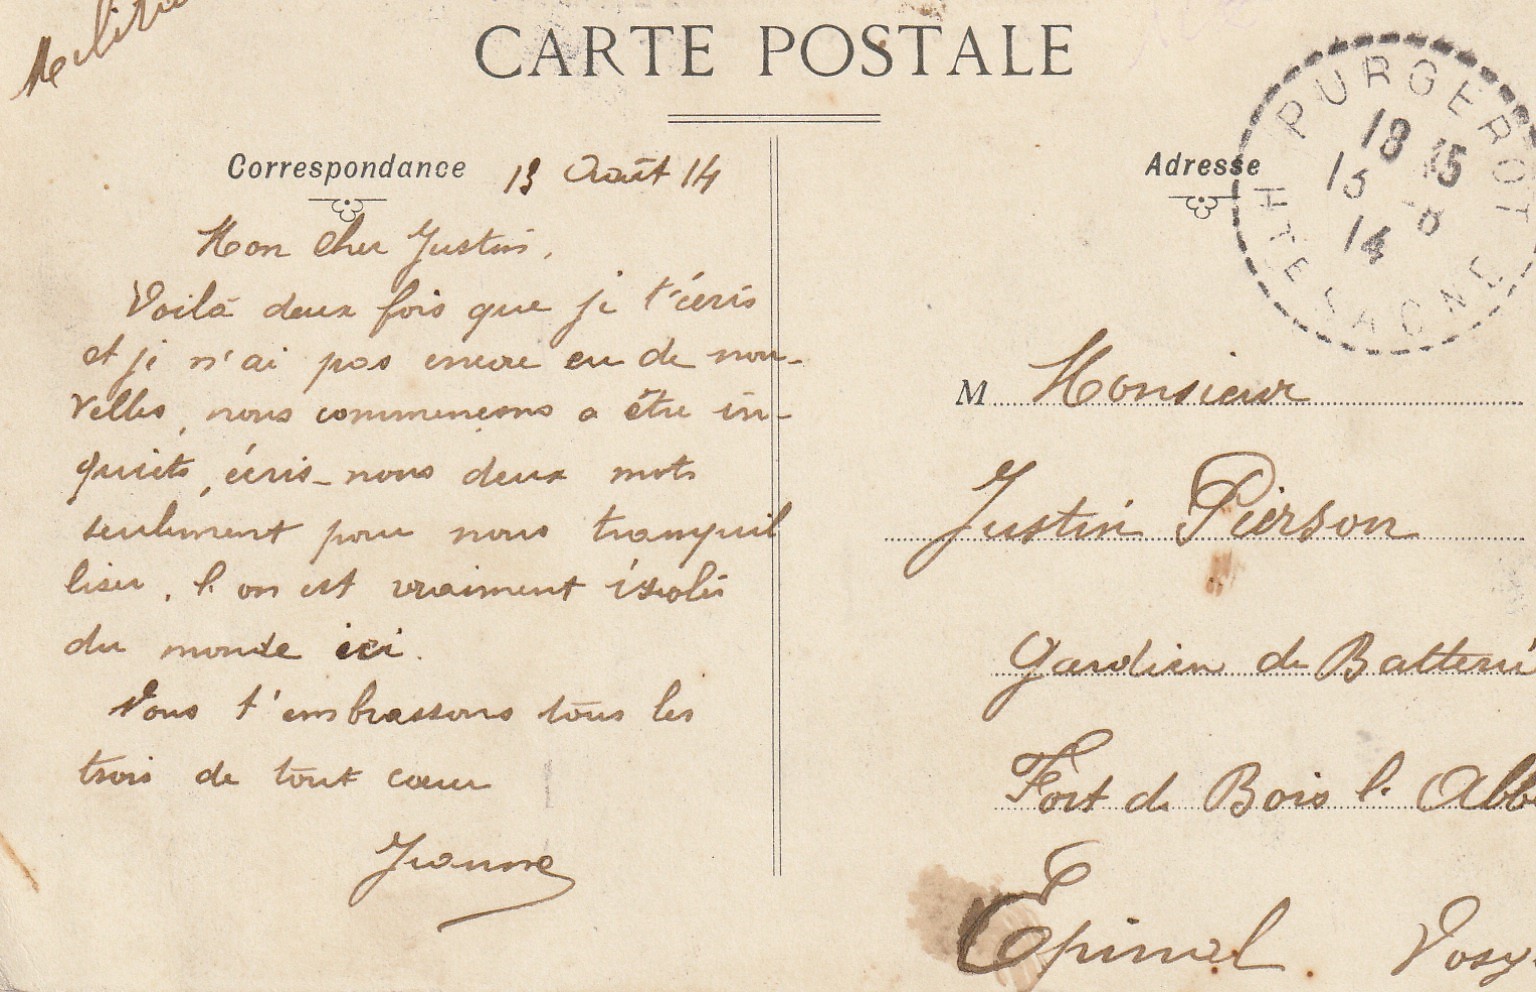 CARTE POSTALE
Correspondance 13 Août 14
Mon cher Justin,
Voilà deux fois que je t'écris
et je n'ai pas encore eu de nou-
velles, nous commençons a être in-
quiets, écris-nous deux mots
seulement pour nous tranquil
liser, l'on est vraiment isolés
du monde ici.
Nous t'embrassons tous les
trois de tout cœur
Jeanne
Adresse
PURGEROT
18 15
13 -8
14
HTE SAONE
M Monsieur
Justin Pierson
Gardien de Batterie
Fort de Bois l'Abbé
Epinal. Vosg